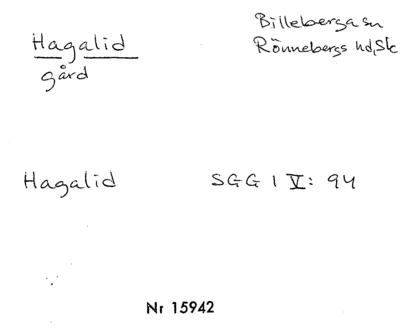 Hagalid
gård
Billeberga sn
Rönnebergs hd, Sk
Hagalid SGG I V: 94
Nr 15942